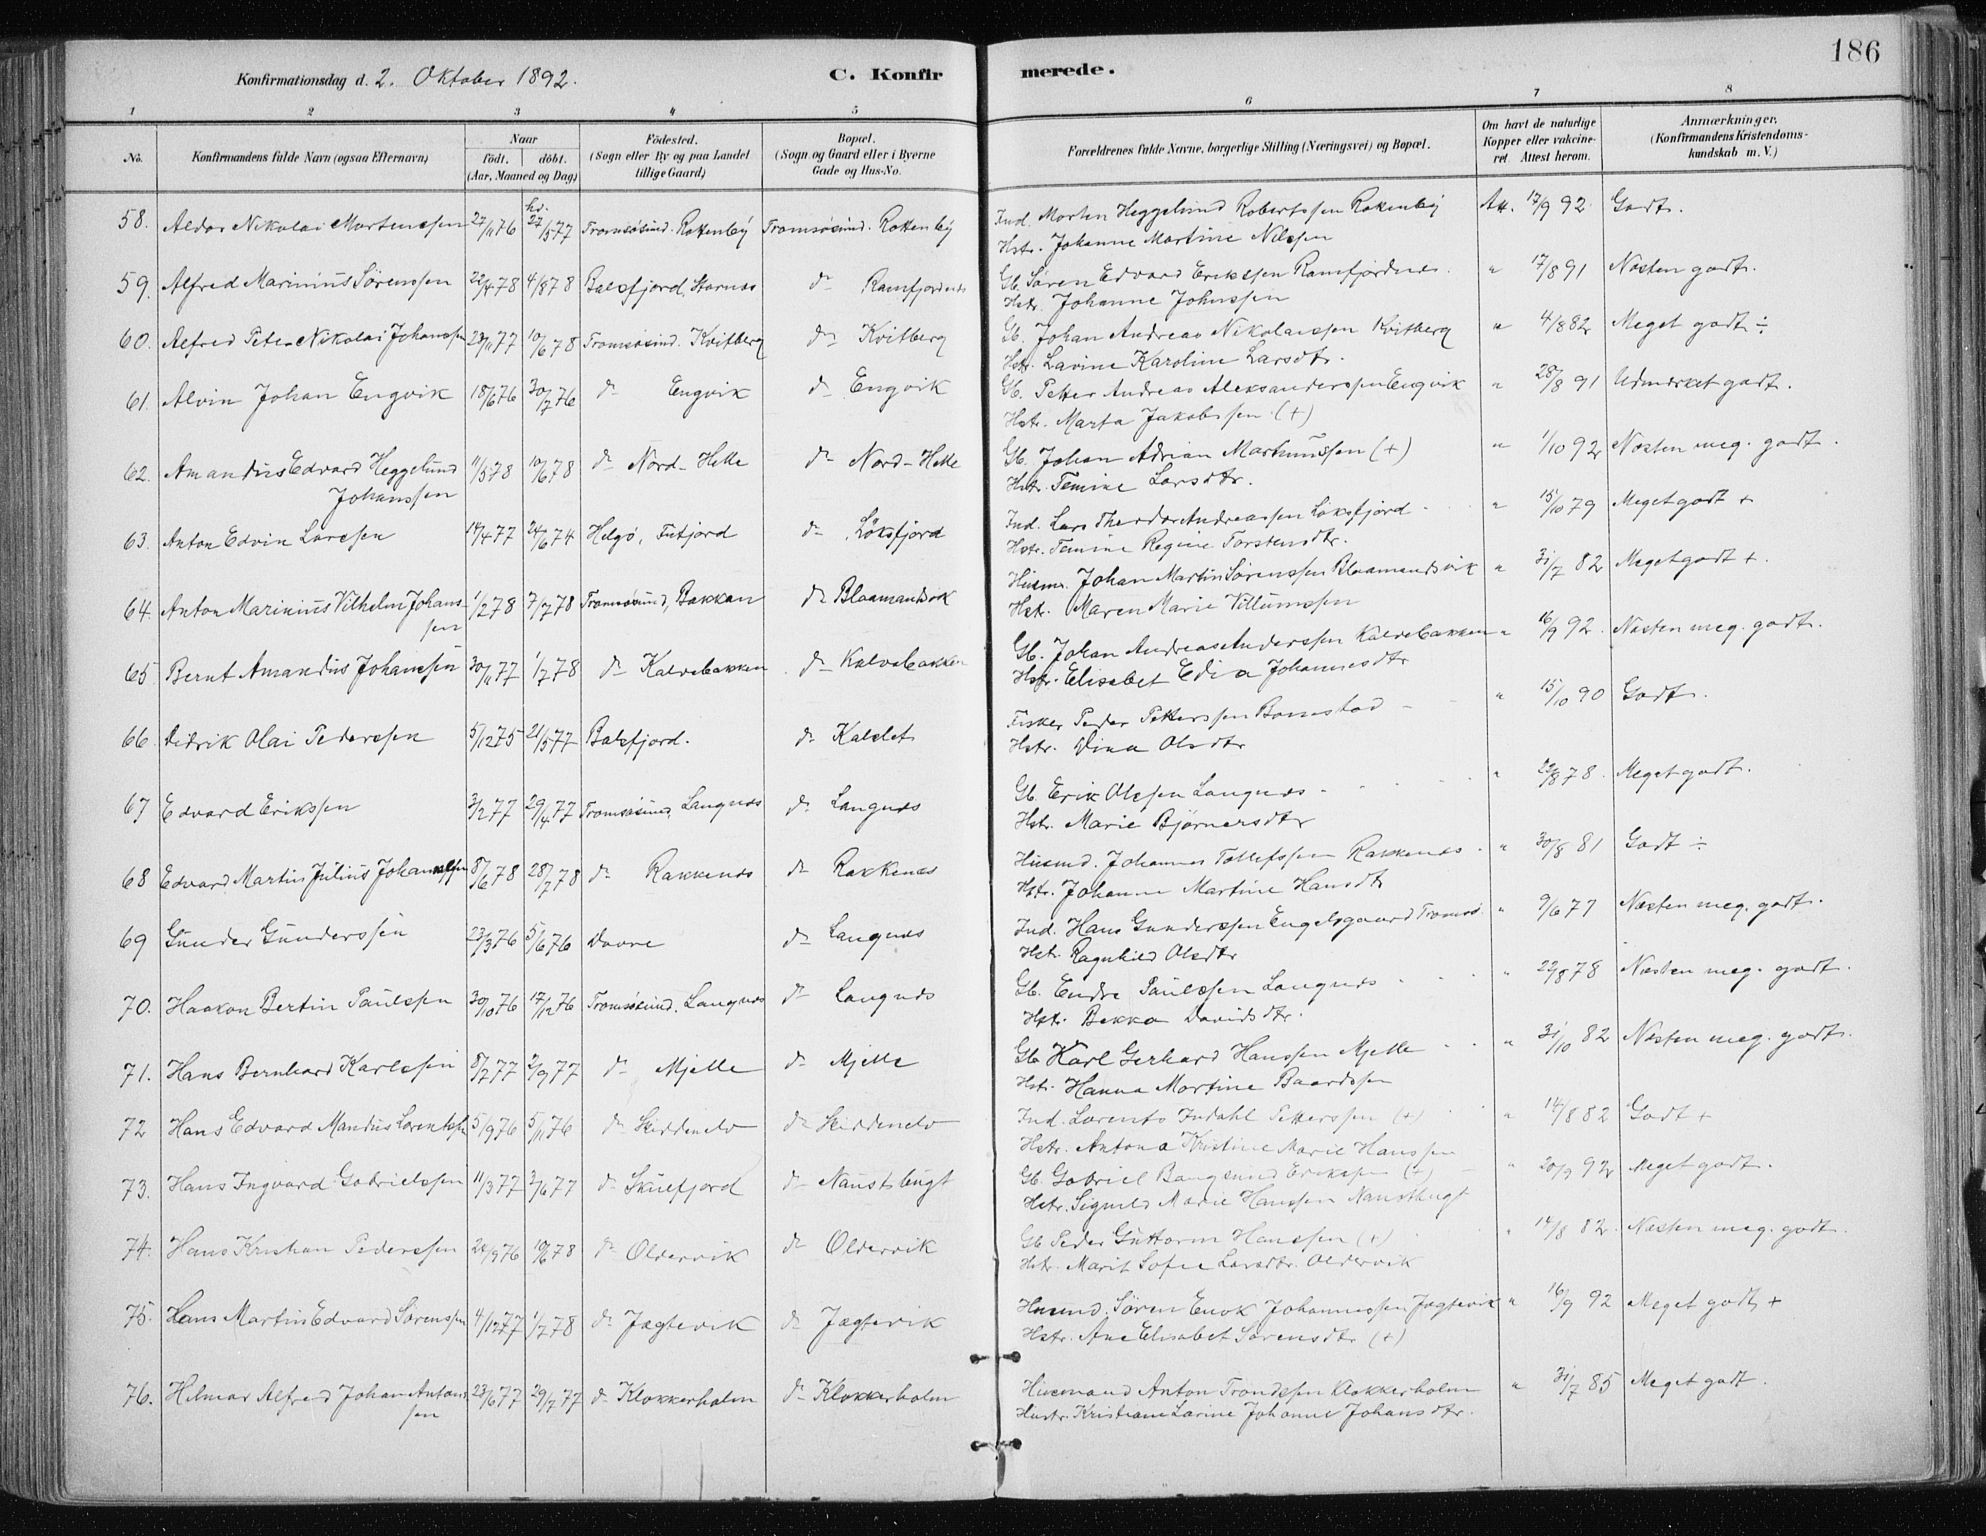 186
Konfirmationsdag d. 2. Oktober 1892. C. Konfirmerede.
1 2 3 4 5 6 7 8
No. Konfirmandens fulde Navn (ogsaa Efternavn) Naar født. døbt. (Aar, Maaned og Dag) Fødested. (Sogn eller By og paa Landet tillige Gaard) Bopæl. (Sogn og Gaard eller i Byerne Gade og Hus-No. Forældrenes fulde Navne, borgerlige Stilling (Næringsvei) og Bopæl. Om havt de naturlige Kopper eller vakcineret. Attest herom. Anmærkninger. (Konfirmandens Kristendomskundskab m. V.)
58. Aldor Nikolai Mortenssen 27/11 76 hd. 27/5 77 Tromsøsund. Rottenby Tromsøsund. Rottenby Ind. Morten Heggelund Robertssen Rotenby Att. 17/9 92. Godt.
Hstr. Johanne Martine Nilssen
59. Alfred Marinius Sørenssen 22/4 78 4/8 78 Balsfjord, Stornes do Ramfjordnes Gb. Søren Edvard Erikssen Ramfjordnes. " 17/8 91 Næsten godt.
Hstr. Johanne Johnssen
60. Alfred Peter Nikolai Johanssen 23/11 77 10/6 78 Tromsøsund. Kvitberg do Kvitberg Gb. Johan Andreas Nikolaissen Kvitberg " 4/8 82 Meget godt ÷
Hstr. Lavine Karoline Larsdtr.
61. Alvin Johan Engvik 18/6 76 30/7 76 do Engvik do Engvik Gb. Petter Andreas Aleksanderssen Engvik " 28/8 91 Udmerket godt.
Hstr. Marta Jakobssen (+)
62. Amandus Edvard Heggelund Johanssen 11/5 78 10/6 78 do Nord-Helle do Nord-Helle Gb. Johan Adrian Markussen (+) " 1/10 92 Næsten meg. godt.
Hstr. Temine Larsdtr.
63. Anton Edvin Larssen 14/4 77 24/6 74 Helgø, do Løksfjord Ind. Lars Theodor Andreassen Løksfjord " 15/10 79 Meget godt +
Hstr. Temine Regine Torstensdtr.
64. Anton Marinius Vilhelm Johanssen 1/2 78 7/7 78 Tromsøsund, Bakkan do Blaamandsvik Husm. Johan Martin Sørenssen Blaamandsvik " 31/7 82 Meget godt +.
Hstr. Maren Marie Villumssen
65 Bernt Amandus Johanssen 30/11 77 1/7 78 do Kalvebakken do Kalvebakken Gb. Johan Andreas Anderssen Kalvebakken " 16/9 92. Næsten meg. godt.
Hstr. Elisabet Edia Johannesdtr
66. Didrik Olai Pederssen 5/12 75 21/5 77 Balsfjord. do Kalslet Fisker Peder Petterssen Bomstad " 15/10 90 Godt.
Hstr. Dina Olsdtr
67 Edvard Erikssen 3/2 77 29/4 77 Tromsøsund, Langnes do Langnes Gb. Erik Olssen Langnes " 22/8 78. Meget godt.
Hstr. Marie Bjørnersdtr
68 Edvard Martin Julius Johannessen 8/6 78 28/7 78 do Rakkenes do Rakkenes Husmd. Johannes Tollefssen Rakkenes " 30/8 81 Godt ÷
Hstr. Johanne Martine Hansdtr
69 Gunder Gunderssen 23/3 76 5/6 76 Dovre do Langnes Ind. Hans Gunderssen Engelsgaard Tromsø. " 9/6 77 Næsten meg. godt.
Hstr. Ragnhild Olsdtr
70. Haakon Bertin Paulssen 30/10 76 17/12 76 Tromsøsund. Langnes do Langnes Gb. Endre Paulssen Langnes " 22/8 78 Næsten meg. godt.
Hstr. Bekka Davidsdtr.
71. Hans Bernhard Karlssen 8/7 77 2/9 77 do Mjelle do Mjelle Gb. Karl Gerhard Hanssen Mjelle " 31/10 82 Næsten meg. godt.
Hstr. Hanna Martine Baardssen
72 Hans Edvard Mandus Lorentssen 5/9 76 5/11 76 do Skiddenelv do Skiddenelv Ind. Lorents Indahl Petterssen (+) " 14/8 82 Godt +
Hstr. Antona Kristine Marie Hanssen
73. Hans Ingvard Gabrielssen 11/3 77 3/6 77 do Skulsfjord do Naustbugt Gb. Gabriel Bangsund Erikssen (+) " 20/9 92 Meget godt.
Hstr. Signild Marie Hanssen Naustbugt
74. Hans Kristian Pederssen 24/9 76 10/6 78 do Oldervik do Oldervik Gb. Peder Guttorm Hanssen (+) " 14/8 82. Næsten meg. godt.
Hstr. Marit Sofie Larsdtr. Oldervik
75. Hans Martin Edvard Sørenssen 4/12 77 1/7 78 do Jægtevik do Jægtevik Husmd. Søren Enok Johannessen Jægtevik " 16/9 92 Meget godt, +
Hstr. Ane Elisabet Sørensdtr (+)
76. Hilmar Alfred Johan Antonssen 23/6 77 29/7 77 do Klokkerholm do Klokkerholm Husmand Anton Trondssen Klokkerholm " 31/7 85 Meget godt.
Hustr. Kristiane Larine Johanne Johansdtr.